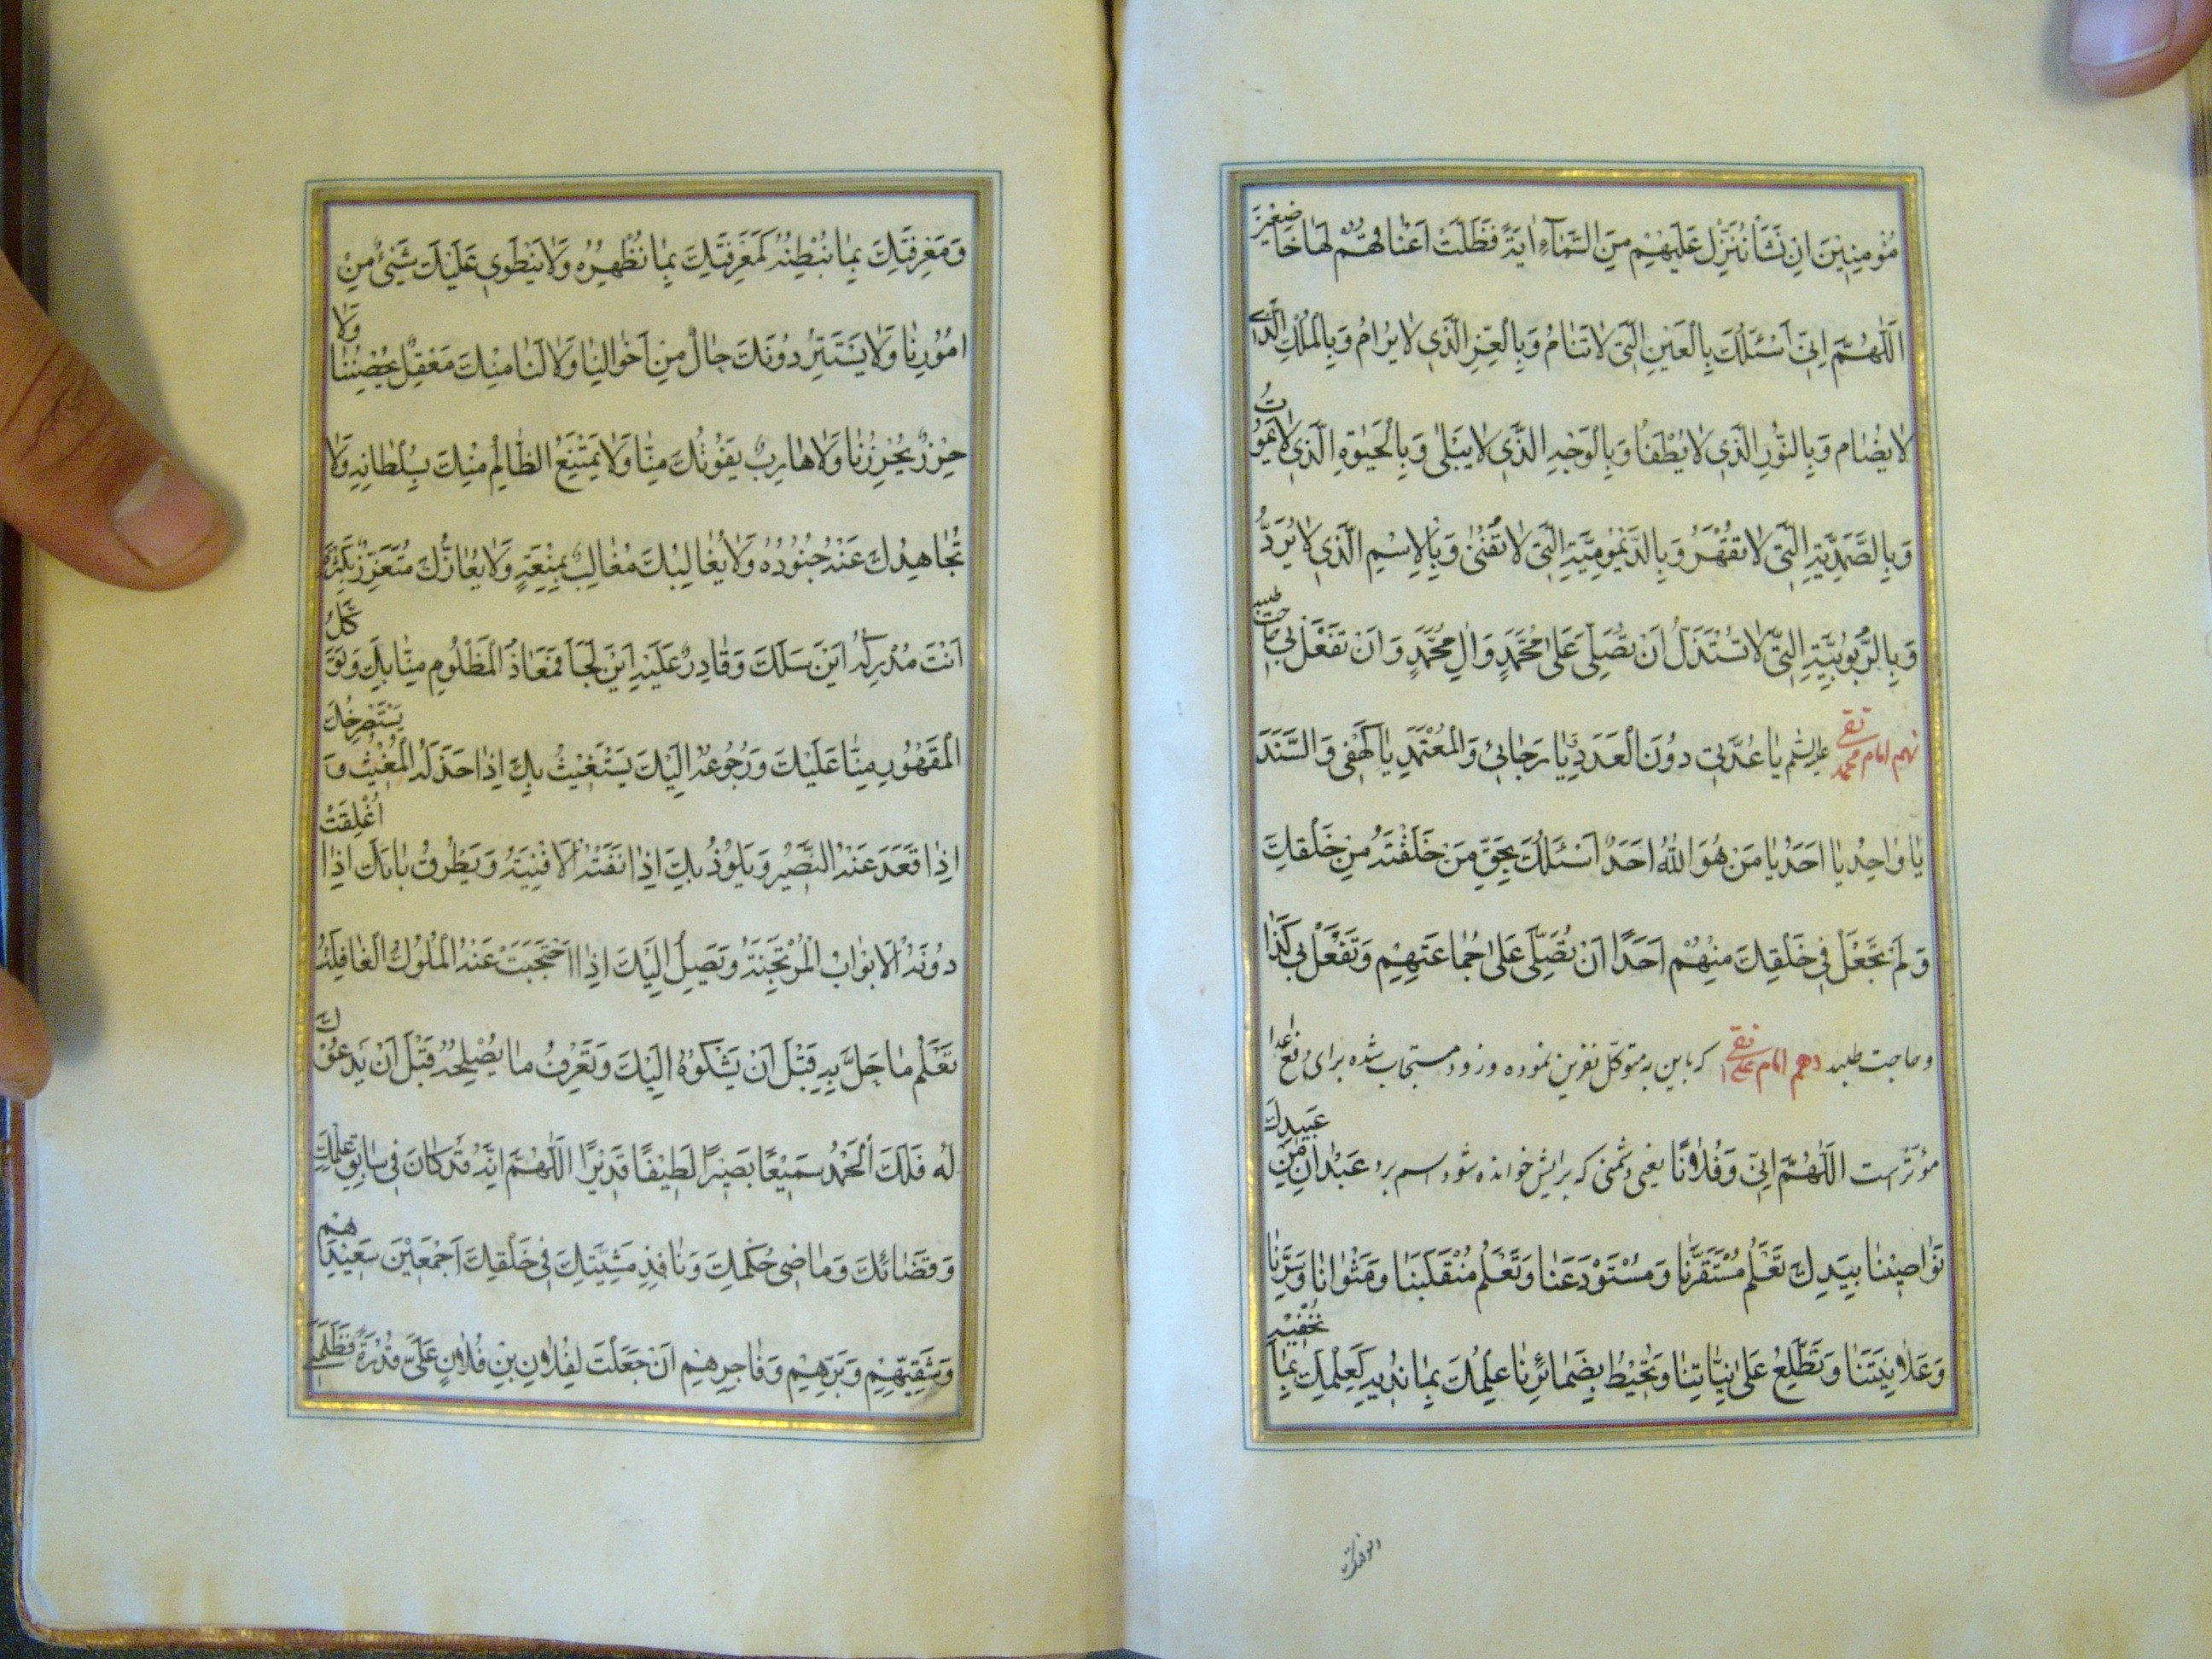 مُؤْمِنِينَ اِنْ نَشَأْ نُنَزِّلْ عَلَيْهِمْ مِنَ السَّمَآءِ اٰيَةً فَظَلَّتْ اَعْنٰاقُهُمْ لَهٰا خٰاضِعِينَ
اَللّٰهُمَّ اِنّٖى اَسْئَلُكَ بِالْعَيْنِ الَّتِى لٰا تَنٰامُ وَبِالْعِزِّ الَّذِى لٰا يُرٰامُ وَبِالْمُلْكِ الَّذِى
لٰا يُضٰامُ وَبِالنُّورِ الَّذِى لٰا يُطْفَأُ وَبِالْوَجْهِ الَّذِى لٰا يَبْلىٰ وَبِالْحَيٰوةِ الَّذِى لٰا يَمُوتُ
وَبِالصَّمَدِيَّةِ الَّتِى لٰا تُقْهَرُ وَبِالدَّيْمُومِيَّةِ الَّتِى لٰا تُفْنىٰ وَبِالْاِسْمِ الَّذِى لٰا يُرَدُّ
وَبِالرُّبُوبِيَّةِ الَّتِى لٰا تُسْتَذَلُّ اَنْ تُصَلِّىَ عَلىٰ مُحَمَّدٍ وَاٰلِ مُحَمَّدٍ وَاَنْ تَفْعَلَ بِى حاجت طلبد
نهم امام محمد تقى عليه السلم يٰا عُدَّتِى دُونَ الْعَدَدِ وَيٰا رَجٰائِى وَالْمُعْتَمَدِ يٰا كَهْفِى وَالسَّنَدَ
يٰا وٰاحِدُ يٰا اَحَدُ يٰا مَنْ هُوَ اللّٰهُ اَحَدٌ اَسْئَلُكَ بِحَقِّ مَنْ خَلَقْتَهُ مِنْ خَلْقِكَ
وَلَمْ تَجْعَلْ فِى خَلْقِكَ مِنْهُمْ اَحَدًا اَنْ تُصَلِّىَ عَلىٰ جَمٰاعَتِهِمْ وَتَفْعَلَ بِى كَذٰا
و حاجت طلبد دهم امام على نقى كه باين به متوكل نفرين نموده و زود مستجاب شده براى دفع اعدا
مؤثر است اَللّٰهُمَّ اِنّٖى وَفُلٰانًا يعنى دشمنى كه برايش خوانده شود اسم برد عَبْدٰانِ مِنْ عَبِيدِكَ
نَوٰاصِينٰا بِيَدِكَ تَعْلَمُ مُسْتَقَرَّنٰا وَمُسْتَوْدَعَنٰا وَتَعْلَمُ مُنْقَلَبَنٰا وَمَثْوٰانٰا وَسِرَّنٰا
وَعَلٰانِيَتَنٰا وَتَطَّلِعُ عَلىٰ نِيّٰاتِنٰا وَتُحِيطُ بِضَمٰائِرِنٰا عِلْمُكَ بِمٰا نُبْدِيهِ كَعِلْمِكَ بِمٰا نُخْفِيهِ
وَمَعْرِفَتُكَ بِمٰا نُبْطِنُهُ كَمَعْرِفَتِكَ بِمٰا نُظْهِرُهُ وَلٰا يَنْطَوِى عَلَيْكَ شَىْءٌ مِنْ
اُمُورِنٰا وَلٰا يَسْتَتِرُ دُونَكَ حٰالٌ مِنْ اَحْوٰالِنٰا وَلٰا لَنٰا مِنْكَ مَعْقِلٌ يُحْصِنُنٰا وَلٰا
حِرْزٌ يُحْرِزُنٰا وَلٰا هٰارِبٌ يَفُوتُكَ مِنّٰا وَلٰا يَمْتَنِعُ الظّٰالِمُ مِنْكَ بِسُلْطٰانِهِ وَلٰا
تُجٰاهِدُكَ عَنْهُ جُنُودُهُ وَلٰا يُغٰالِبُكَ مُغٰالِبٌ بِمَنْعَةٍ وَلٰا يُعٰازُّكَ مُتَعَزِّزٌ بِكَثْرَةٍ
اَنْتَ مُدْرِكُهُ اَيْنَ سَلَكَ وَقٰادِرٌ عَلَيْهِ اَيْنَ لَجَأَ فَمَعٰاذُ الْمَظْلُومِ مِنّٰا بِكَ وَتَوَكُّلُ
الْمَقْهُورِ مِنّٰا عَلَيْكَ وَرُجُوعُهُ اِلَيْكَ يَسْتَغِيثُ بِكَ اِذٰا خَذَلَهُ الْمُغِيثُ وَيَسْتَصْرِخُكَ
اِذٰا قَعَدَ عَنْهُ النَّصِيرُ وَيَلُوذُ بِكَ اِذٰا نَفَتْهُ الْاَفْنِيَةُ وَيَطْرُقُ بٰابَكَ اِذٰا اُغْلِقَتْ
دُونَهُ الْاَبْوٰابُ الْمُرْتَجَةُ وَتَصِلُ اِلَيْكَ اِذٰا احْتَجَبَتْ عَنْهُ الْمُلُوكُ الْغٰافِلَةُ
تَعْلَمُ مٰا حَلَّ بِهِ قَبْلَ اَنْ يَشْكُوهُ اِلَيْكَ وَتَعْرِفُ مٰا يُصْلِحُهُ قَبْلَ اَنْ يَدْعُوكَ
لَهُ فَلَكَ الْحَمْدُ سَمِيعًا بَصِيرًا لَطِيفًا قَدِيرًا اَللّٰهُمَّ اِنَّهُ قَدْ كٰانَ فِى سٰابِقِ عِلْمِكَ
وَقَضٰائِكَ وَمٰاضِى حُكْمِكَ وَنٰافِذِ مَشِيَّتِكَ فِى خَلْقِكَ اَجْمَعِينَ سَعِيدِهِمْ
وَشَقِيِّهِمْ وَبَرِّهِمْ وَفٰاجِرِهِمْ اَنْ جَعَلْتَ لِفُلٰانِ بْنِ فُلٰانٍ عَلَىَّ قُدْرَةً فَظَلَمَنِى